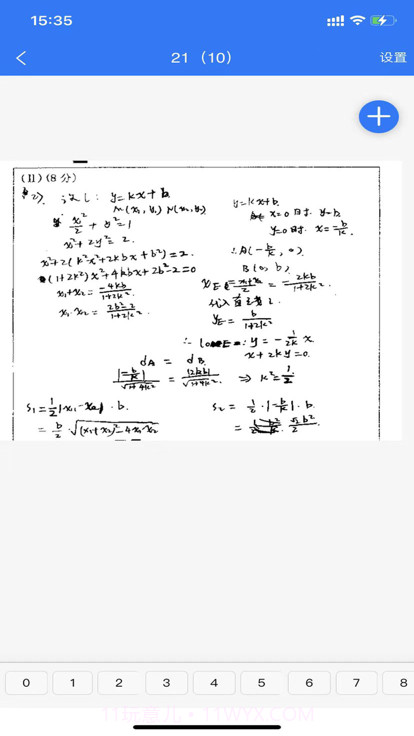 15:35
21（10）
设置
(II) (8分)
(2). 设 l : y=kx+b
M(x₁, y₁) N(x₂, y₂)
x²/2 + y²=1
x²+2y²=2.
x²+2(k²x²+2kbx+b²)=2
(1+2k²)x²+4kbx+2b²-2=0
x₁+x₂= -4kb/1+2k²
x₁·x₂= 2b²-2/1+2k²
y=kx+b
x=0时 y=b
y=0时 x=-b/k
∴A(-b/k, 0)
B(0, b)
x_E = x₁+x₂/2 = -2kb/1+2k²
代入直线 l
y_E = b/1+2k²
∴ l_OE : y = -1/2k x
x+2ky=0.
d_A = d_B
|-b/k|/√1+4k² = |2kb|/√1+4k² ⇒ k²=1/2
S₁=1/2|x₁-x₂| · b
= b/2 · √(x₁+x₂)²-4x₁x₂
S₂ = 1/2 · |-b/k| · b
= √2b²/2
0 1 2 3 4 5 6 7 8